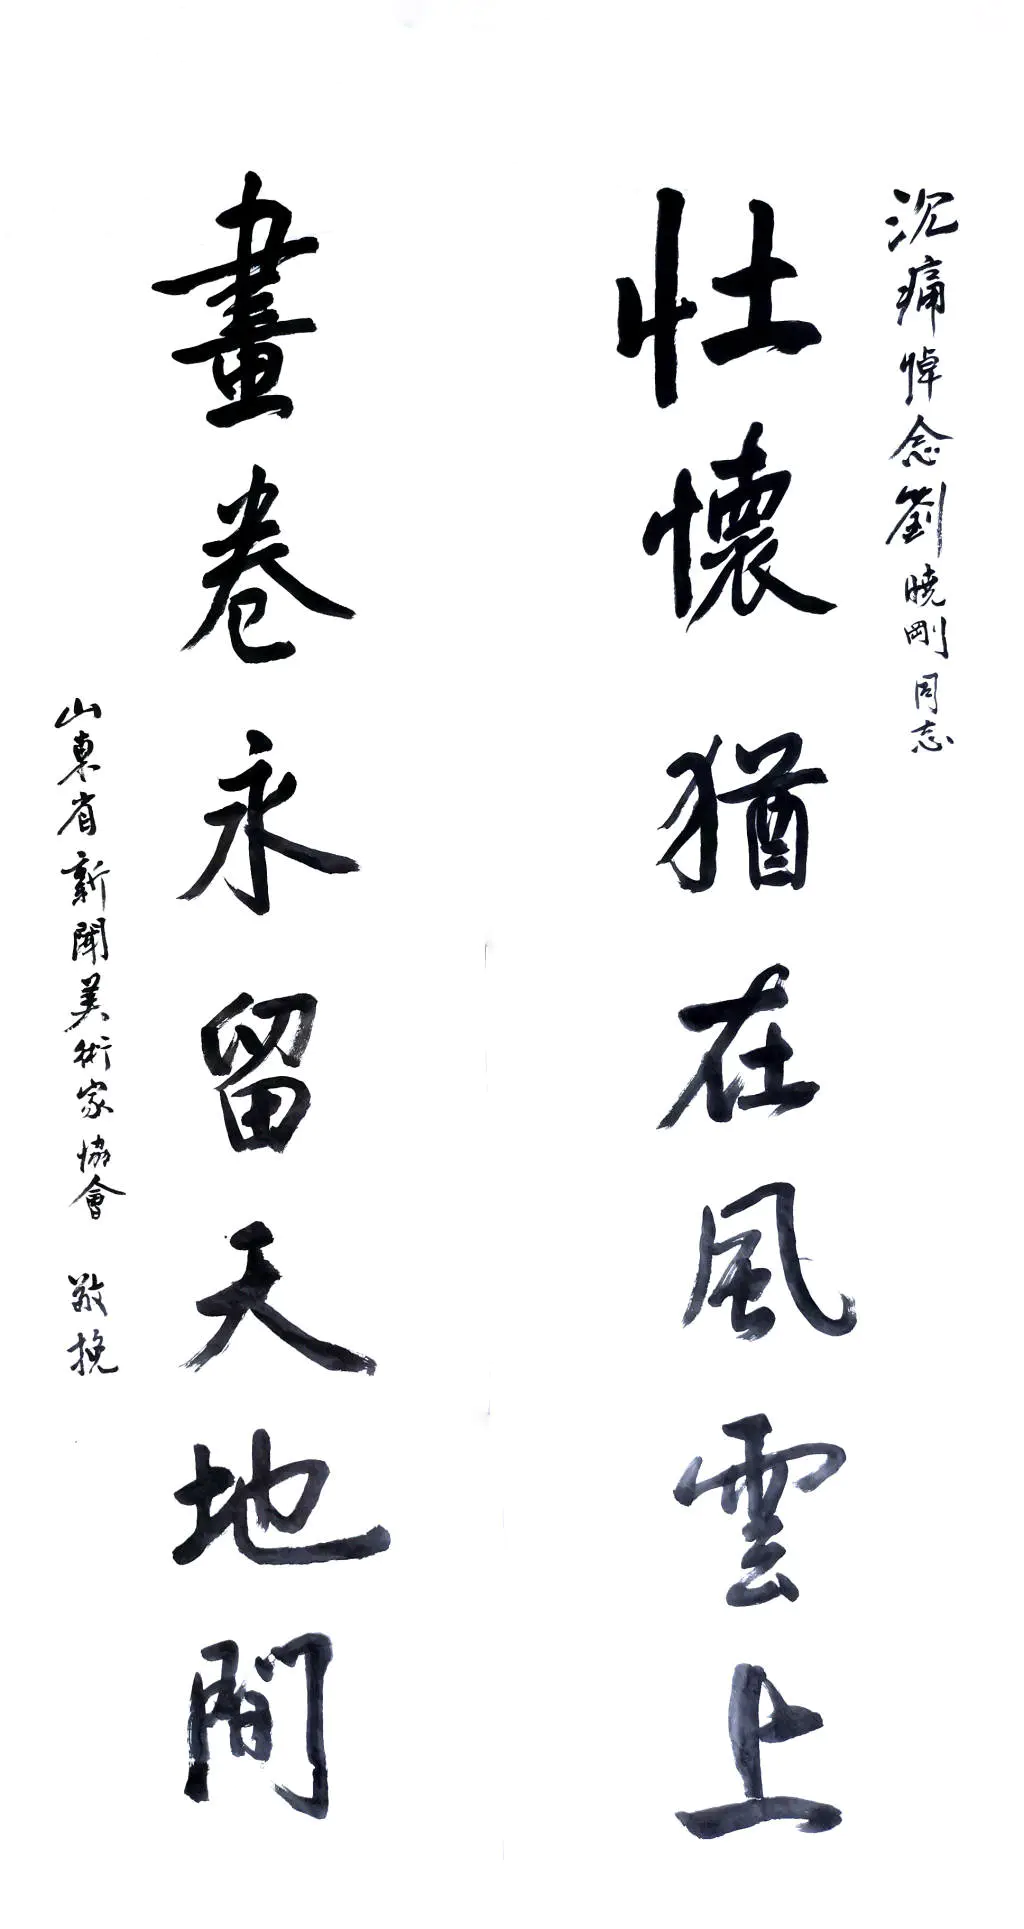 沉痛悼念劉曉剛同志
壯懷猶在風雲上
畫卷永留天地間
山東省新聞美術家協會 敬挽